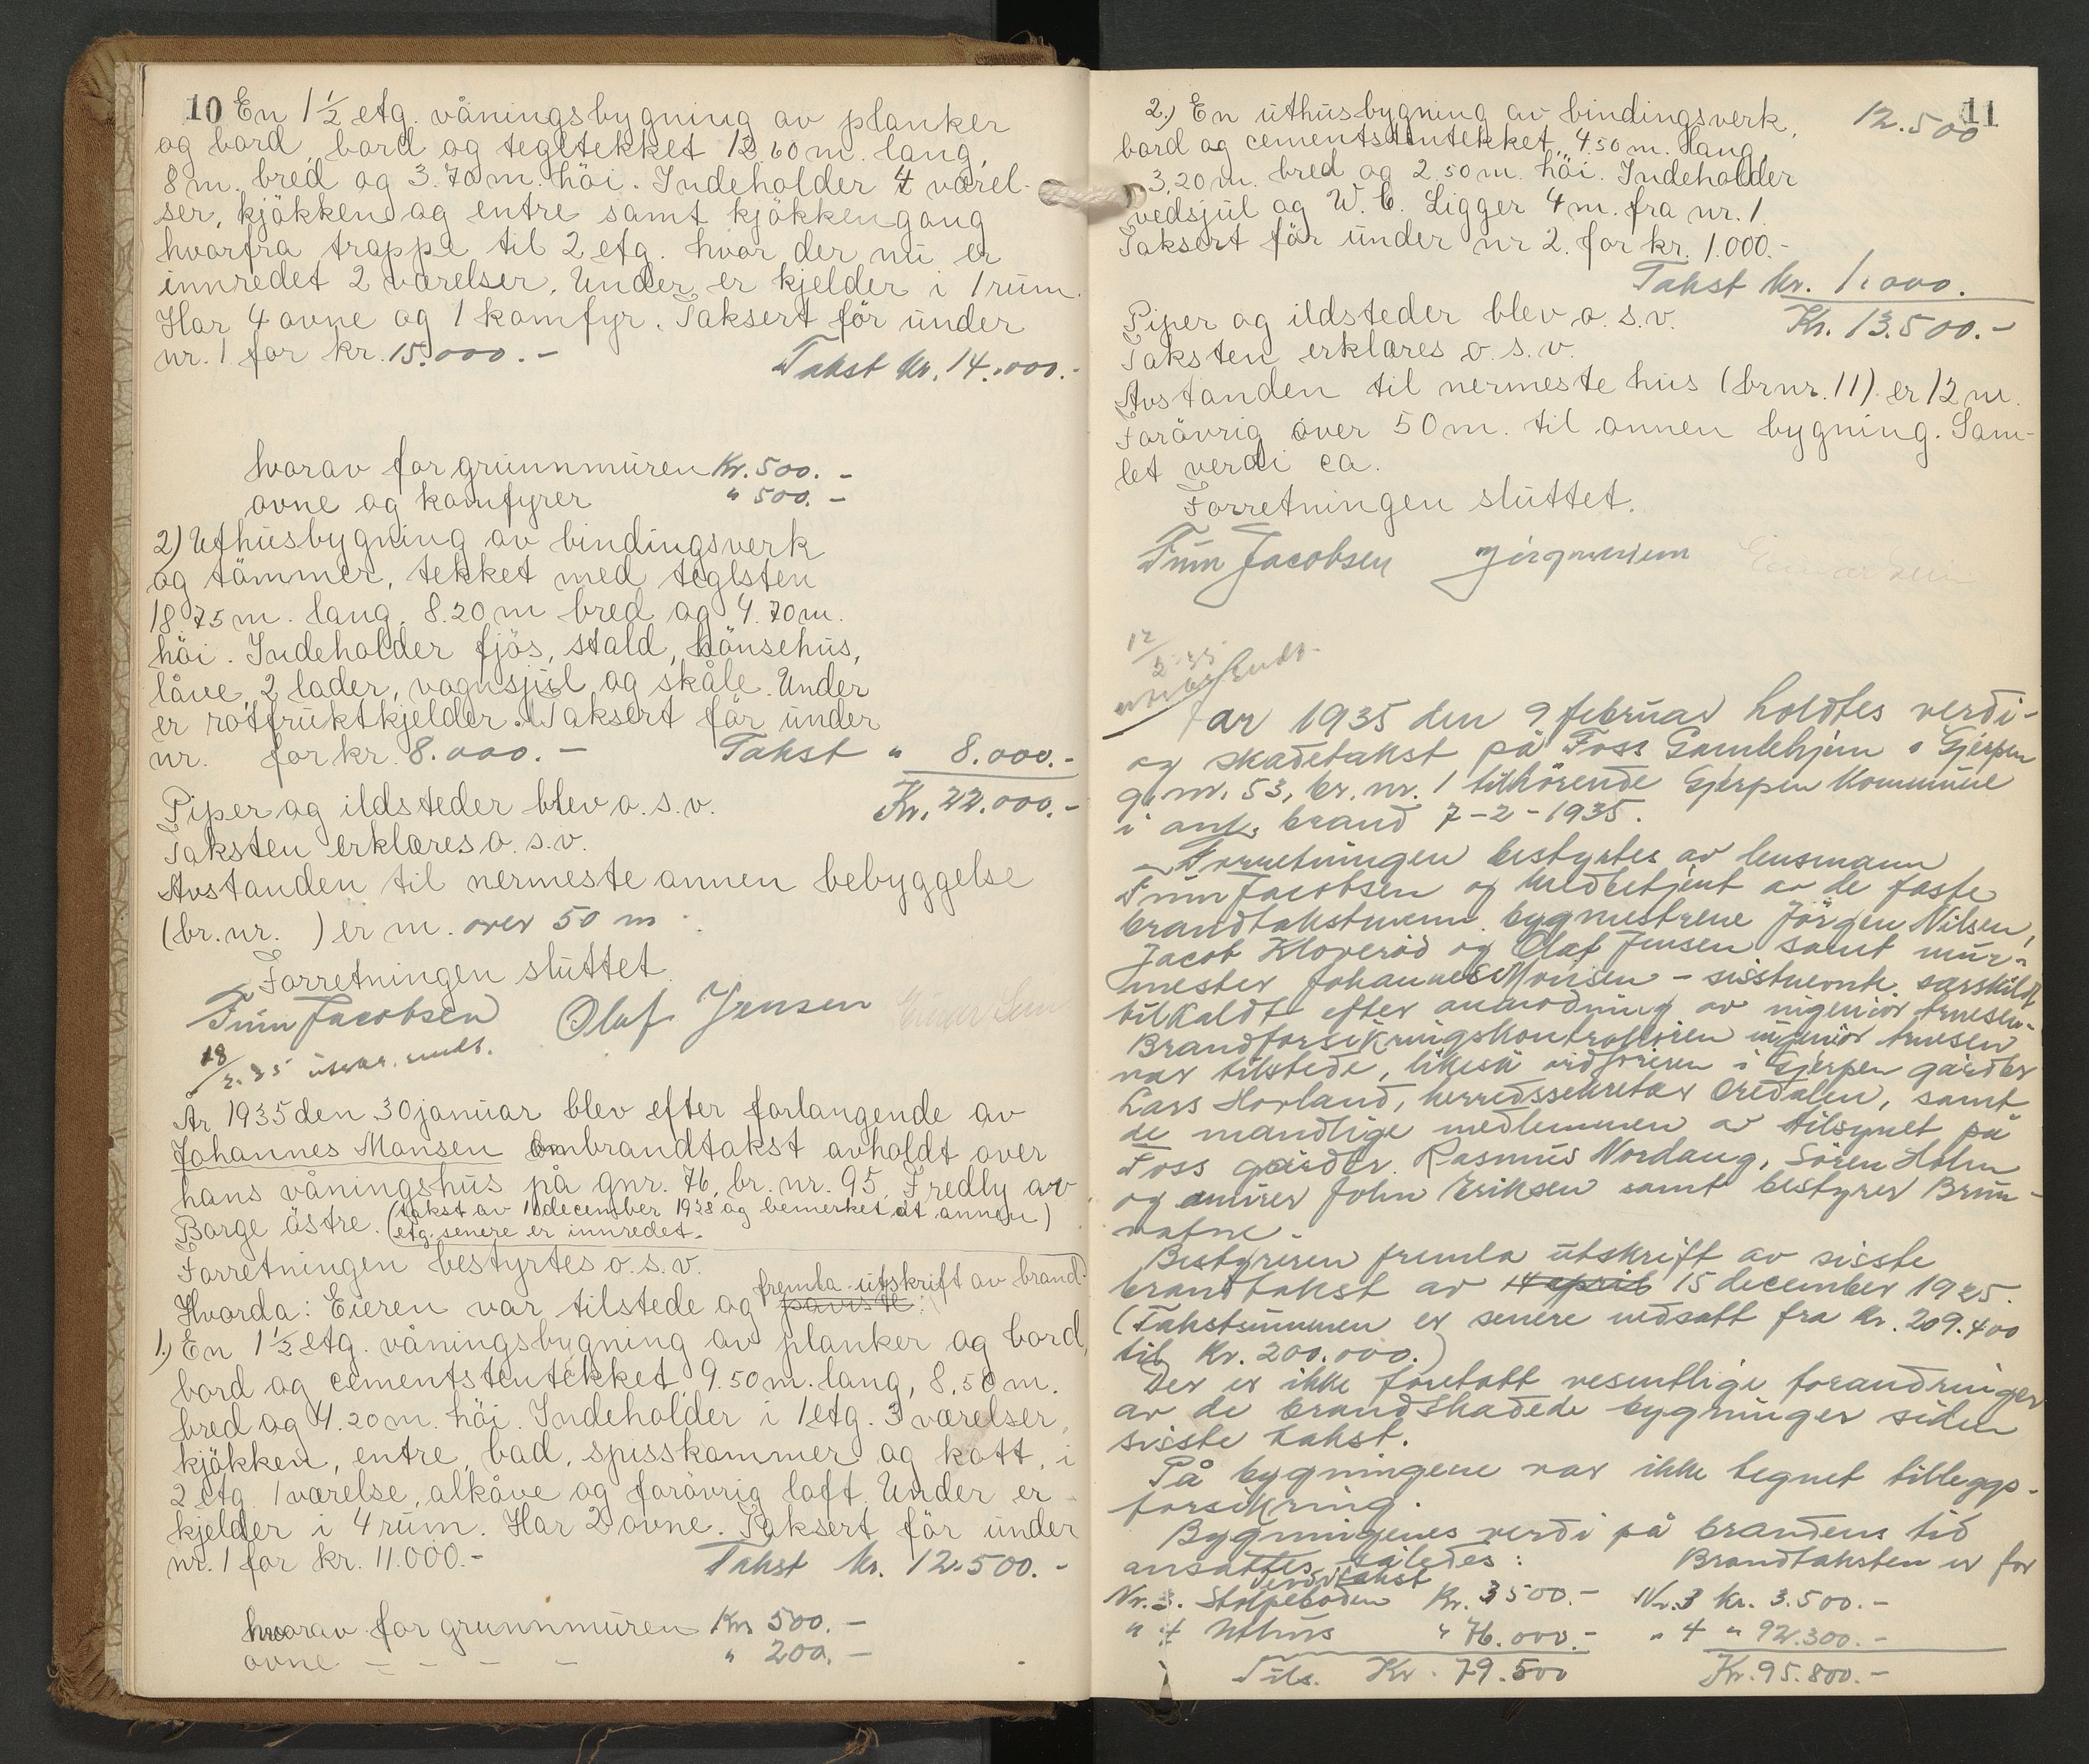 10 En 1 1/2 etg. våningsbygning av planker
og bord, bord og tegltekket 12,60 m. lang,
8 m. bred og 3.70 m. höi. Indeholder 4 værel-
ser, kjökken og entre samt kjökkengang
hvorfra trappe til 2 etg. hvor der nu er
innredet 2 værelser. Under er kjelder i 1 rum.
Har 4 ovne og 1 komfyr. Taksert för under
nr. 1 for kr. 15.000.-
Takst kr. 14.000.-
hvorav for grunnmuren Kr. 500.-
ovne og komfyrer " 500.-
2) Uthusbygning av bindingsverk
og tömmer, tekket med teglsten
18.75 m. lang, 8.20 m bred og 4.70 m.
höi. Indeholder fjös, stald, hönsehus,
låve, 2 lader, vognsjul og skåle. Under
er rotfruktkjelder. Taksert för under
nr. for kr. 8.000.- Takst " 8.000.-
Kr. 22.000.-
Piper og ildsteder blev o. s. v.
Taksten erklæres o. s. v.
Avstanden til nermeste annen bebyggelse
(br. nr. ) er m. over 50 m.
Forretningen sluttet.
Finn Jacobsen Olaf Jensen
18/2.35 utskr. sendt.
År 1935 den 30 januar blev efter forlangende av
Johannes Monsen ombrandtakst avholdt over
hans våningshus på gnr. 76, br. nr. 95, Fredly av
Borge östre. (takst av 11 december 1928 og bemerket at annen)
(etg. senere er innredet.
Forretningen bestyrtes o. s. v.
fremla utskrift av brand-
Hvorda: Eieren var tilstede og påviste:
1.) En 1 1/2 etg. våningsbygning av planker og bord,
bord og cementstentekket, 9.50 m. lang, 8,50 m.
bred og 4.20 m. höi. Indeholder i 1 etg. 3 værelser,
kjökken, entre, bad, spisskammer og kott, i
2 etg. 1 værelse, alkåve og forövrig loft. Under er
kjelder i 4 rum. Har 2 ovne. Taksert för under
nr. 1 for kr. 11.000.-
Takst kr. 12.500.-
hvorav for grunnmuren Kr. 500.-
ovne - - - - " 200.-
11
12.500
2.) En uthusbygning av bindingsverk,
bord og cementstentekket, 4.50 m. lang,
3,20 m. bred og 2.50 m. höi. Indeholder
vedsjul og W. C. Ligger 4 m. fra nr. 1.
Taksert för under nr 2. for kr. 1.000.-
Takst kr. 1.000.
Kr. 13.500.-
Piper og ildsteder blev o. s. v.
Taksten erklæres o. s. v.
Avstanden til nermeste hus (br nr. 11) er 12 m.
Forövrig over 50 m. til annen bygning. Sam-
let verdi ca.
Forretningen sluttet.
Finn Jacobsen
12/2 35
utskr. sendt.
År 1935 den 9 februar holdtes verdi-
og skadetakst på Foss Gamlehjem i Gjerpen
g. nr. 53, br. nr. 1 tilhörende Gjerpen Kommune
i anl. brand 7-2-1935.
Forretningen bestyrtes av lensmann
Finn Jacobsen og medbetjent av de faste
brandtakstmenn bygmestrene Jörgen Nilsen,
Jacob Kloveröd og Olaf Jensen samt mur-
mester Johannes Monsen - sisstnevnte særskildt
tilkaldt efter anmodning av ingeniör
Brandforsikringskontrollören ingeniör
var tilstede, likeså ordföreren i Gjerpen gårdbr
Lars Hovland, herredssekretær Oredalen, samt
de mandlige medlemmer av tilsynet på
Foss gårdbr. Rasmus Nordaug, Sören Holm
og murer John Eriksen samt bestyrer Brun-
vatne.
Bestyreren fremla utskrift av sisste
brandtakst av 14 april 15 december 1925.
(Takstsummen er senere nedsatt fra kr. 209.400
til kr. 200.000.)
Der er ikke foretatt vesentlige forandringer
av de brandskadede bygninger siden
sisste takst.
På bygningene var ikke tegnet tilleggs-
forsikring.
Bygningenes verdi på brandens tid
ansattes således: Brandtaksten er for
Verditakst
Nr. 3. Stolpeboden Kr. 3500.- Nr. 3 kr. 3.500.-
" 4 Uthus " 76.000.- " 4 " 92.300.-
Tils. Kr. 79.500 Kr. 95.800.-